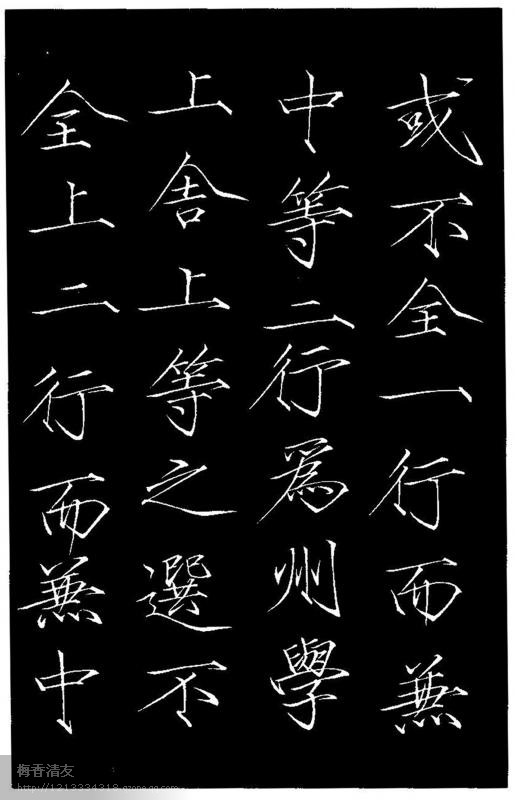 或不全一行而兼
中等二行為州學
上舍上等之選不
全上二行而兼中
梅香清友